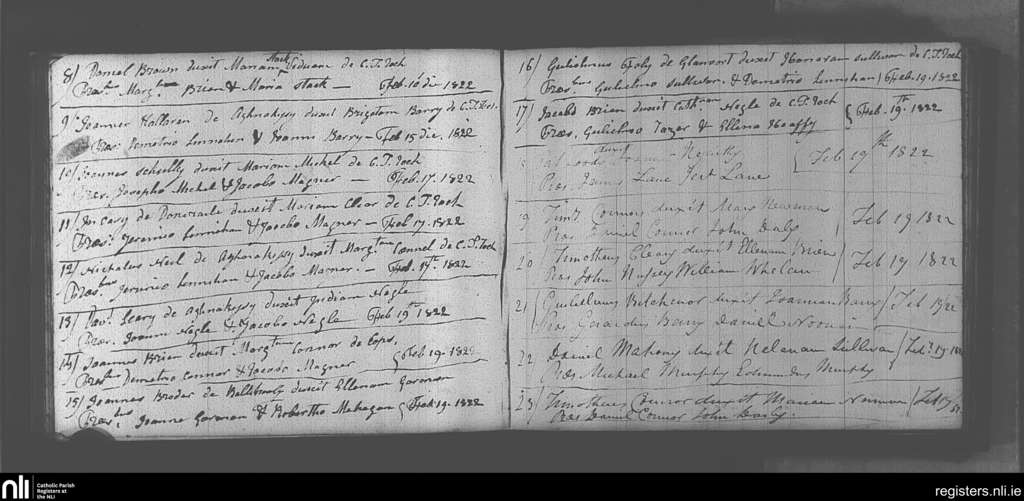 8/ Daniel Brown duxit Mariam Stack Viduam de C.T.Roch
Præs. Margt. Brien & Maria Stack — Feb 16 die 1822
9/ Joannes Holloran de Aghnakipy duxit Brigitam Barry de C.T.Roc.
Præs. Demetrio Linnehan & Joanna Barry — Feb 15 die. 1822
10/ Joannes Schully duxit Mariam Mickel de C.T.Roch
Præs. Josepho Mickel & Jacobo Magner — Feb. 17. 1822
11/ Cary de Doneraile duxit Mariam Clear de C.T.Roch
Præs. Jeremio Linnehan & Jacobo Magner — Feb 17. 1822
12/ Nicholus Neil de Aghnakipy duxit Margtam Connel de C.T.Roch
Præsbus Jeremio Linnehan & Jacobo Magner. — Feb. 17th 1822
13/ Leary de Aghnakipy duxit Nagle
Præs. Joanni Nagle & Jacobo Nagle Feb 19th 1822
14/ Joannes Brien duxit Margtam Connor de
Præsbus Demetrio Connor & Jacobo Magner Feb. 19. 1822
15/ Joannes Broder de duxit Ellenam Gorman
Præsbus. Joanne Gorman & Robertho Mehegan Feb. 19. 1822
16/ Gulielmus Foly de Glanvort duxit Honoram Sullivan de C.T.Roch
Præsbus Gulielmo Sullivan. & Demetrio Linnehan / Feb. 19. 1822
17/ Jacobs Brien duxit Cathnam Nagle de C.T.Roch
Præs. Gulielmo & Ellena Haffy Feb. 19th 1822
duxit
Præs James Lane Lane Feb 19th 1822
19 Timy Connor duxit Mary Newman
Præs Daniel Connor John Daly Feb 19 1822
20 Timotheus Cleary duxit Ellenam Brien
Præs John William Whelan Feb 19 1822
21 Gulielmus Belchenor duxit Joannam Barry / Feb 19/22
Præs Gerardus Barry Daniel Noonan
22 Daniel Mahony duxit Helenam Sullivan / Feb. 19.
Præs Michael Murphy Edmundus Murphy
23/ Timotheus Connor duxit Mariam Newman / Feb 19/
Præs Daniel Connor John
nli
Catholic Parish
Registers at
the NLI
registers.nli.ie